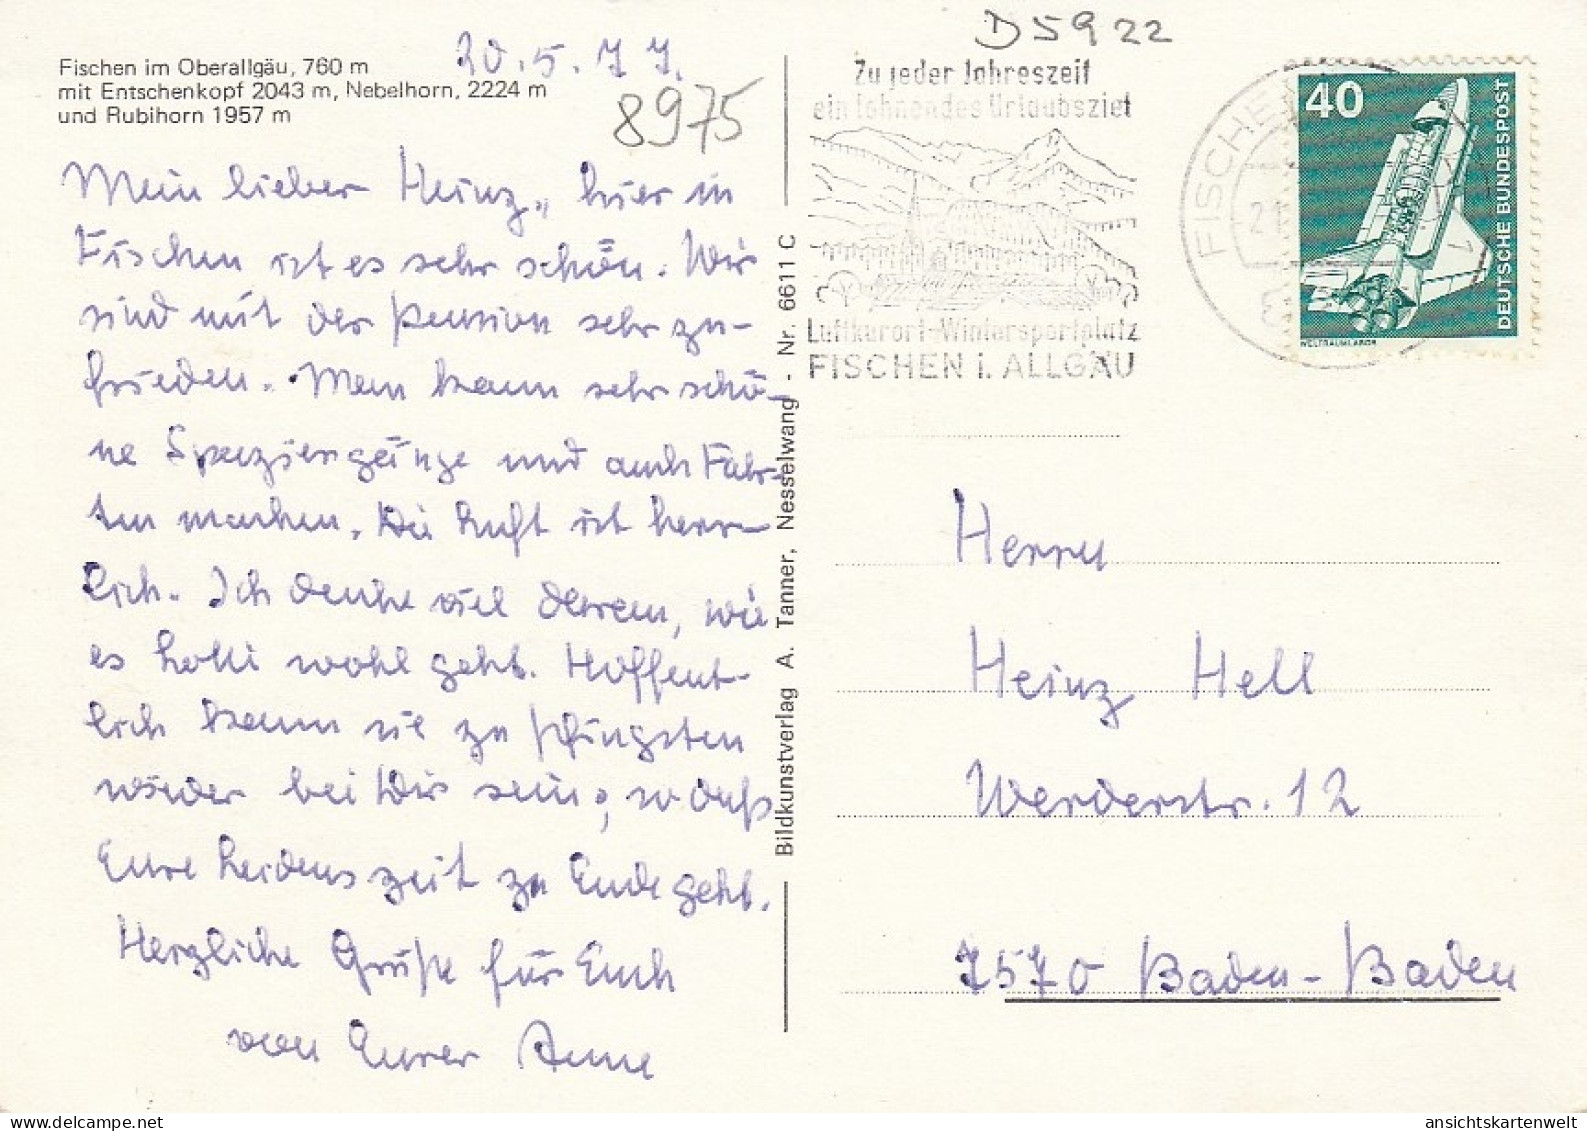 D5922
20.5.77.
Fischen im Oberallgäu, 760 m
mit Entschenkopf 2043 m, Nebelhorn, 2224 m
und Rubihorn 1957 m
8975
Mein lieber Heinz, hier in
Fischen ist es sehr schön. Wir
sind mit der Pension sehr zu-
frieden. Man kann sehr schö-
ne Spaziergänge und auch Fahr-
ten machen. Die Luft ist herr-
lich. Ich denke viel daran, wie
es geht. Hoffent-
lich kann sie zu Pfingsten
wieder bei Dir sein, so daß
Eure zeit zu Ende geht.
Herzliche Grüße für Euch
von Eurer Anne
Bildkunstverlag A. Tanner, Nesselwang - Nr. 6611 C
Zu jeder Jahreszeit
ein lohnendes Urlaubsziel
Luftkurort-Wintersportplatz
FISCHEN i. ALLGÄU
FISCHE
40
DEUTSCHE BUNDESPOST
WELTRAUMLABOR
Herrn
Heinz Hell
Werderstr. 12
7570 Baden-Baden
ansichtskartenwelt